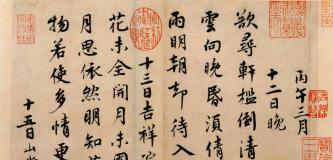 丙午三月
十二日晚
欲尋軒檻倒清
雲向晚昏須倩
雨明朝却待入
十三日吉祥
花未全開月未
月思依然明知
物若使多情
十五日山